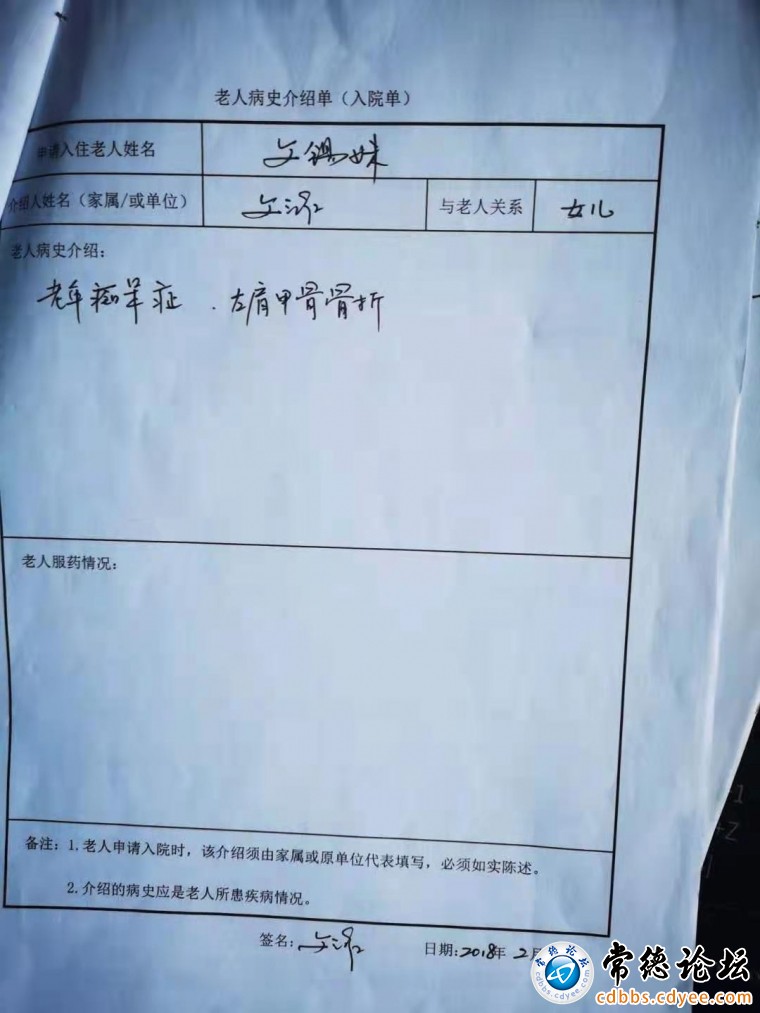 老人病史介绍单（入院单）
申请入住老人姓名 文锡妹
介绍人姓名（家属/或单位） 文 与老人关系 女儿
老人病史介绍：
老年痴呆症 . 左肩甲骨骨折
老人服药情况：
备注：1.老人申请入院时，该介绍须由家属或原单位代表填写，必须如实陈述。
2.介绍的病史应是老人所患疾病情况。
签名：文 日期：2018年 2月
常德论坛
cdbbs.cdyee.com